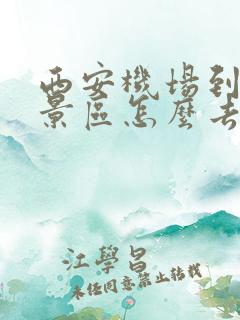 西安機場到
景區怎麼去
江學昌
未任同意禁止轉載